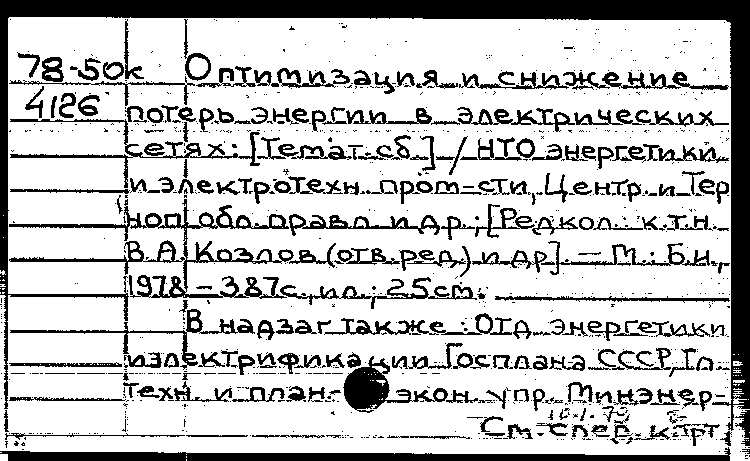 78-50к Оптимизация и снижение
4126 потерь энергии в электрических
сетях: [Темат. сб.] / НТО энергетики
и электротехн. пром-сти, Центр. и Тер
ноп. обл. правл. и др.; [Редкол.: к.т.н.
В.А. Козлов (отв. ред.) и др]. — М.: Б.и.,
1978 - 387с., ил.; 25см.
В надзаг также: Отд. энергетики
и электрификации Госплана СССР, Гл.
техн. и план.- экон. упр. Минэнер-
См. след. к-т